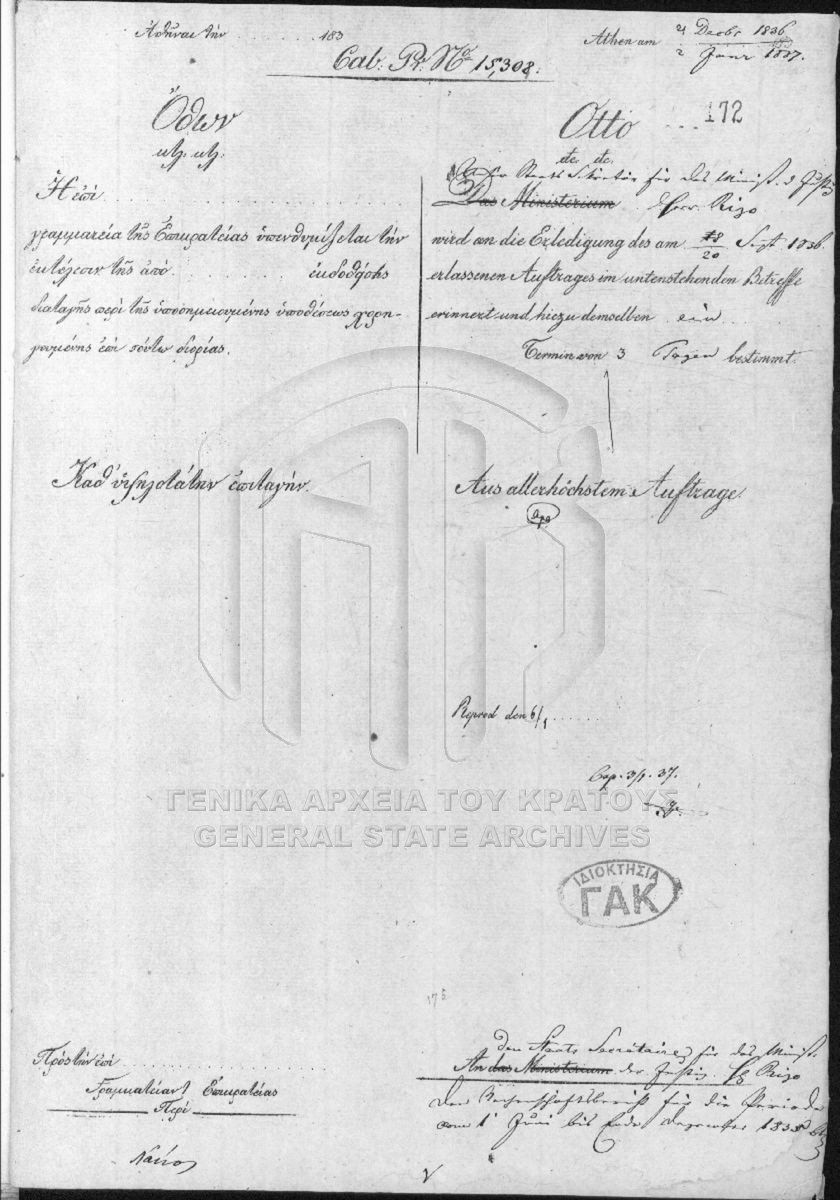 Ἀθῆναι τὴν 183
Cab. Pr. No 15,308.
Athen am 21 Decbr 1836
2 Jänr 1837.
172
Ὄθων
κτλ. κτλ.
Ἡ ἐπὶ
γραμματεία τῆς Ἐπικρατείας ὑπενθυμίζεται τὴν
ἐκτέλεσιν τῆς ἀπὸ ἐκδοθείσης
διαταγῆς περὶ τῆς ὑποσημειουμένης ὑποθέσεως χορη-
γουμένης ἐπὶ τούτῳ διορίας.
Καθ' ὑψηλοτάτην ἐπιταγήν.
Otto
etc. etc.
Der Staats Sekretär für das Minist. d Justiz
Das Ministerium Herr Rizo
wird an die Erledigung des am 18/20 Sept 1836
erlassenen Auftrages im untenstehenden Betreffe
erinnert und hiezu demselben ein
Termin von 3 Tagen bestimmt.
Aus allerhöchstem Auftrage.
den 6/1
3/1. 37.
ΓΕΝΙΚΑ ΑΡΧΕΙΑ ΤΟΥ ΚΡΑΤΟΥΣ
GENERAL STATE ARCHIVES
ΙΔΙΟΚΤΗΣΙΑ
ΓΑΚ
175
Πρὸς τὴν ἐπὶ
Γραμματείαν τ Ἐπικρατείας
Περὶ
den Staats Secretaire für das Minist.
An das Ministerium der Justiz H Rizo
Den Rechenschaftsbericht für die Periode
vom 1 Juni bis Ende Dezember 1835